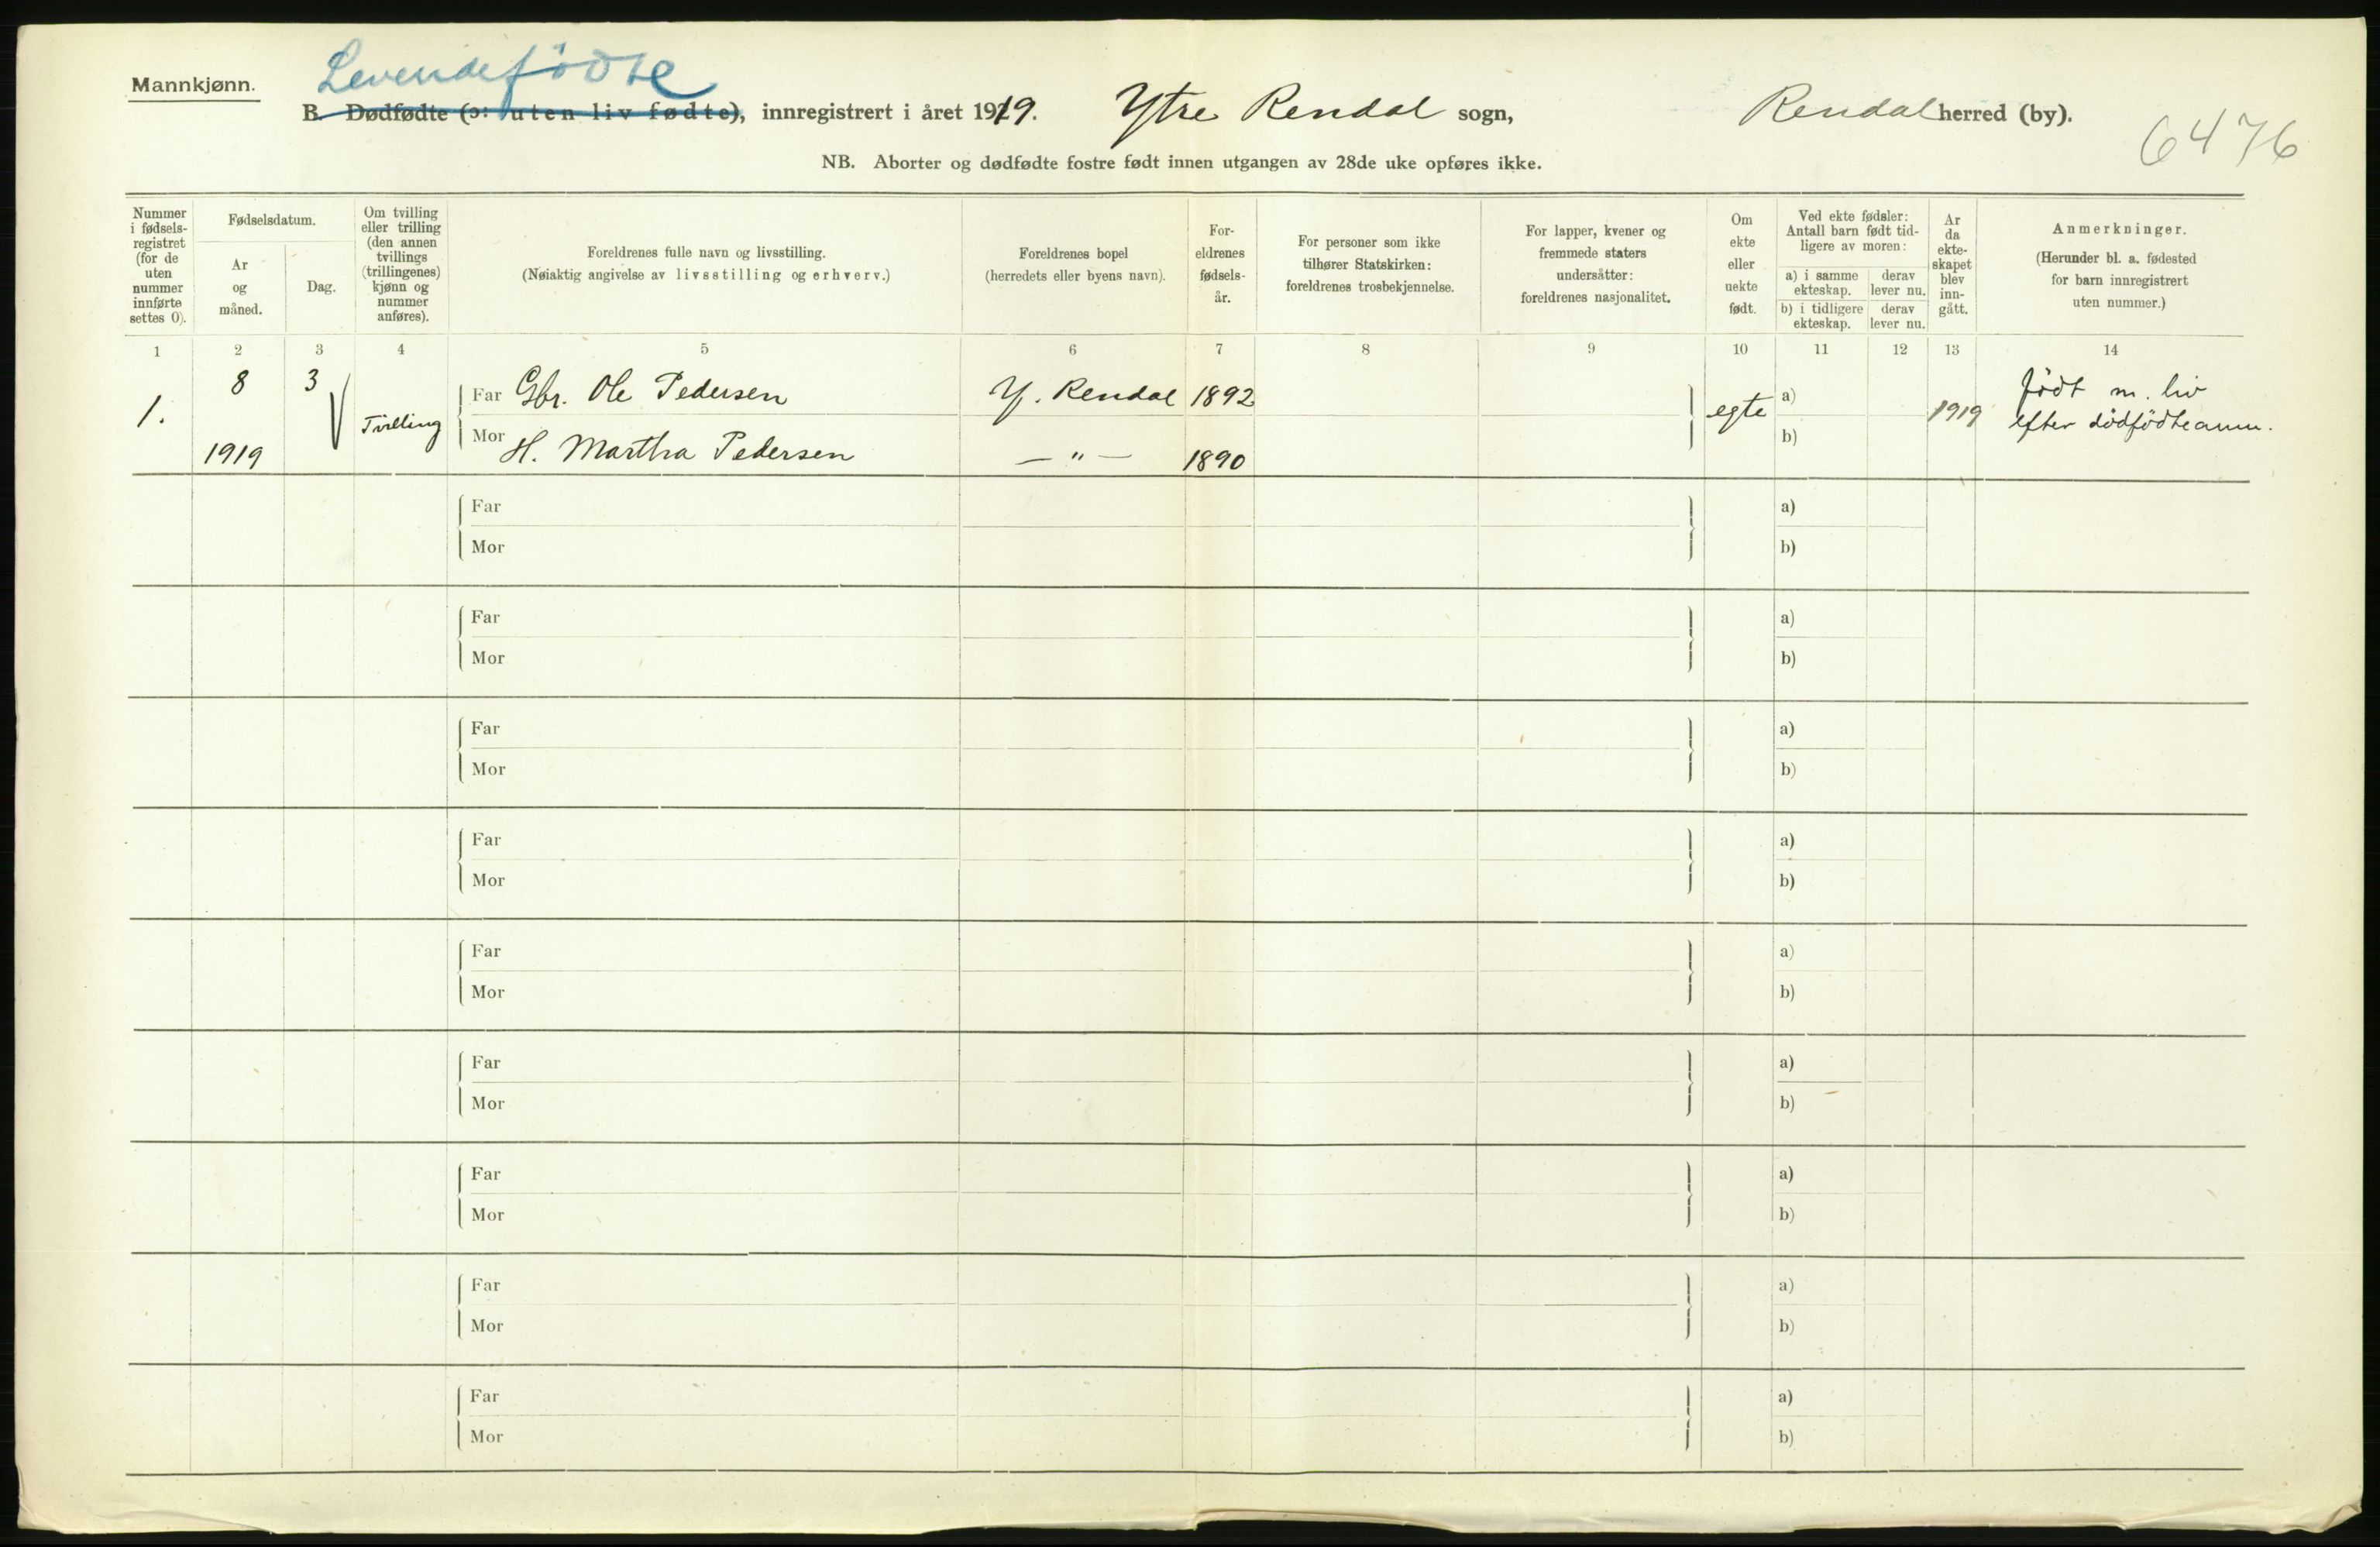 Mannkjønn.
Levendefödte
B. Dødfødte (ɔ: uten liv fødte), innregistrert i året 1919. Ytre Rendal sogn, Rendal herred (by).
6476
NB. Aborter og dødfødte fostre født innen utgangen av 28de uke opføres ikke.
Nummer i fødsels-registret (for de uten nummer innførte settes 0).
Fødselsdatum.
Ar og måned.
Dag.
Om tvilling eller trilling (den annen tvillings (trillingenes) kjønn og nummer anføres).
Foreldrenes fulle navn og livsstilling.
(Nøiaktig angivelse av livsstilling og erhverv.)
Foreldrenes bopel
(herredets eller byens navn).
For-eldrenes fødsels-år.
For personer som ikke tilhører Statskirken: foreldrenes trosbekjennelse.
For lapper, kvener og fremmede staters undersåtter: foreldrenes nasjonalitet.
Om ekte eller uekte født.
Ved ekte fødsler:
Antall barn født tid-ligere av moren:
a) i samme ekteskap.
derav lever nu.
b) i tidligere ekteskap.
derav lever nu.
Ar da ekte-skapet blev inn-gått.
Anmerkninger.
(Herunder bl. a. fødested for barn innregistrert uten nummer.)
1 2 3 4 5 6 7 8 9 10 11 12 13 14
1. 8 3 Tvilling
1919
Far Gbr. Ole Pedersen Y. Rendal 1892
Mor H. Martha Pedersen — " — 1890
egte a) b) 1919
födt m. liv
efter dödfödteanm.
Far a)
Mor b)
Far a)
Mor b)
Far a)
Mor b)
Far a)
Mor b)
Far a)
Mor b)
Far a)
Mor b)
Far a)
Mor b)
Far a)
Mor b)
Far a)
Mor b)